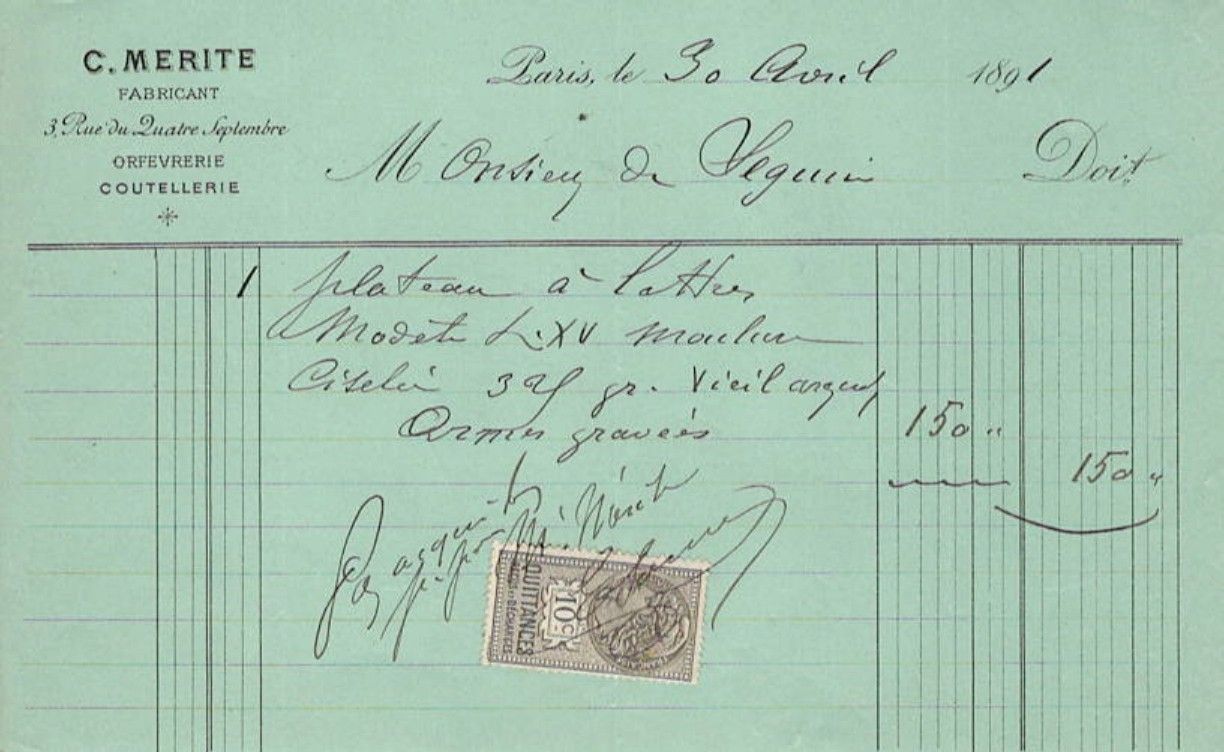 C. MERITE
FABRICANT
3, Rue du Quatre Septembre
ORFEVRERIE
COUTELLERIE
Paris, le 30 Avril 1891
Monsieur de Seguin Doit
1 plateau à lettres
Modèle L. XV moulure
Ciselée gr. Vieil argent
Armes gravées 150 "
150 "
Pour acquit
QUITTANCES
REÇUS ET DÉCHARGES
10 c
FRANÇAISE